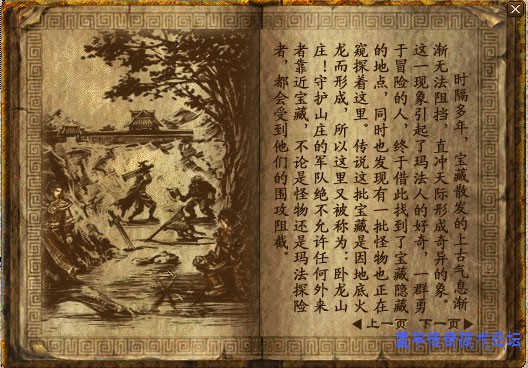 时隔多年，宝藏散发的上古气息渐
渐无法阻挡，直冲天际形成奇异的象。
这一现象引起了玛法人的好奇，一群勇
于冒险的人，终于借此找到了宝藏隐藏
的地点，同时也发现有一批怪物也正在
窥探着这里。传说这批宝藏是因地底火
龙而形成，所以这里又被称为：卧龙山
庄！守护山庄的军队绝不允许任何外来
者靠近宝藏，不论是怪物还是玛法探险
者，都会受到他们的围攻阻截。
◀上一页 下一页▶
技术论坛